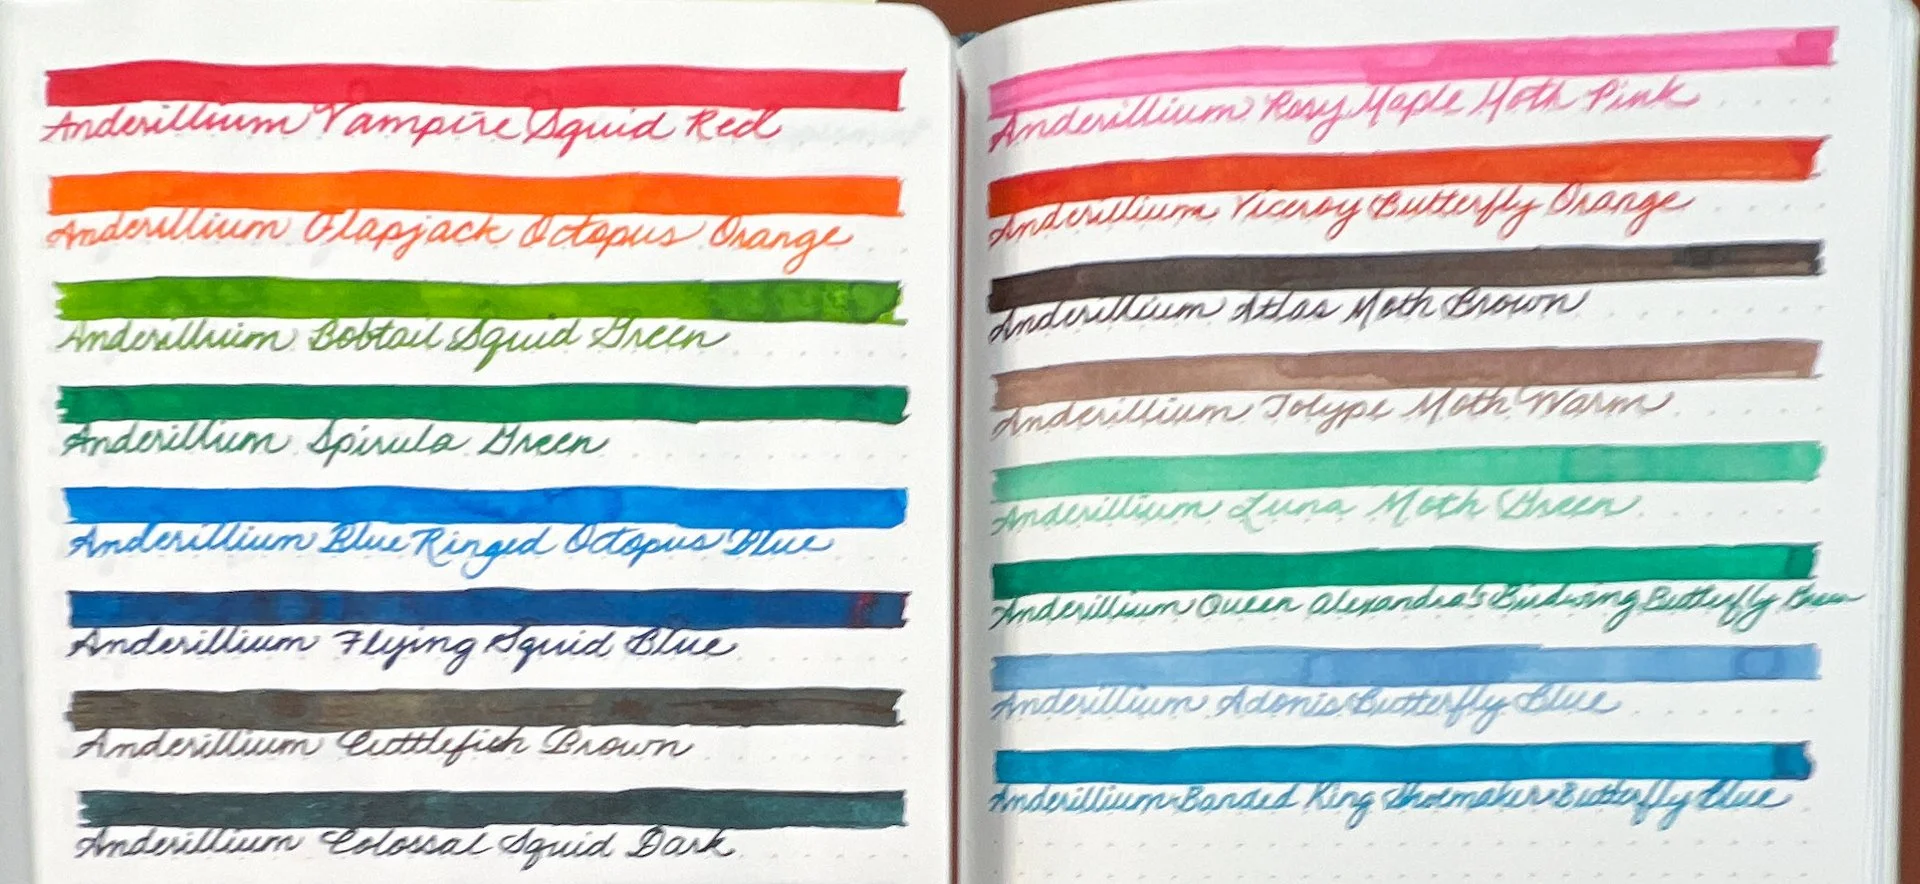 Anderillium Vampire Squid Red
Anderillium Flapjack Octopus Orange
Anderillium Bobtail Squid Green
Anderillium Spirula Green
Anderillium Blue Ringed Octopus Blue
Anderillium Flying Squid Blue
Anderillium Cuttlefish Brown
Anderillium Colossal Squid Dark
Anderillium Rosy Maple Moth Pink
Anderillium Viceroy Butterfly Orange
Anderillium Atlas Moth Brown
Anderillium Tolype Moth Warm
Anderillium Luna Moth Green
Anderillium Queen Alexandra's Birdwing Butterfly Green
Anderillium Adonis Butterfly Blue
Anderillium Banded King Shoemaker Butterfly Blue